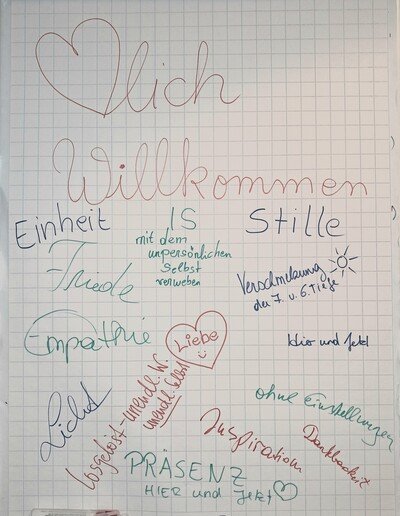 lich
Willkommen
Einheit
IS
Stille
mit dem
unpersönlichen
Selbst
verweben
Friede
Verschmelzung
der 7. u. 6. Tiefe
Empathie
Liebe
Hier und Jetzt
Licht
losgelöst-unendl. W.
unendl. Selbst
ohne Einstellungen
Inspiration
Dankbarkeit
PRÄSENZ
HIER und Jetzt